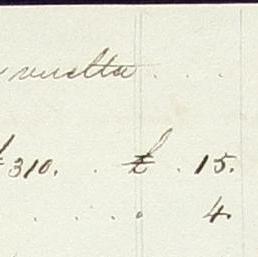 vuelta . . .
310. . £ . 15.
. . . . 4.